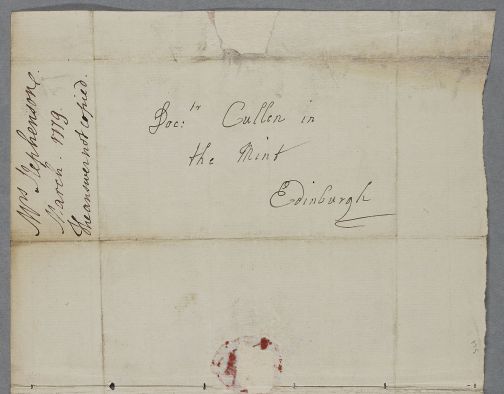 Mrs Stephenson.
March. 1779.
The answer not copied.
Doc:tr Cullen in
the Mint
Edinburgh